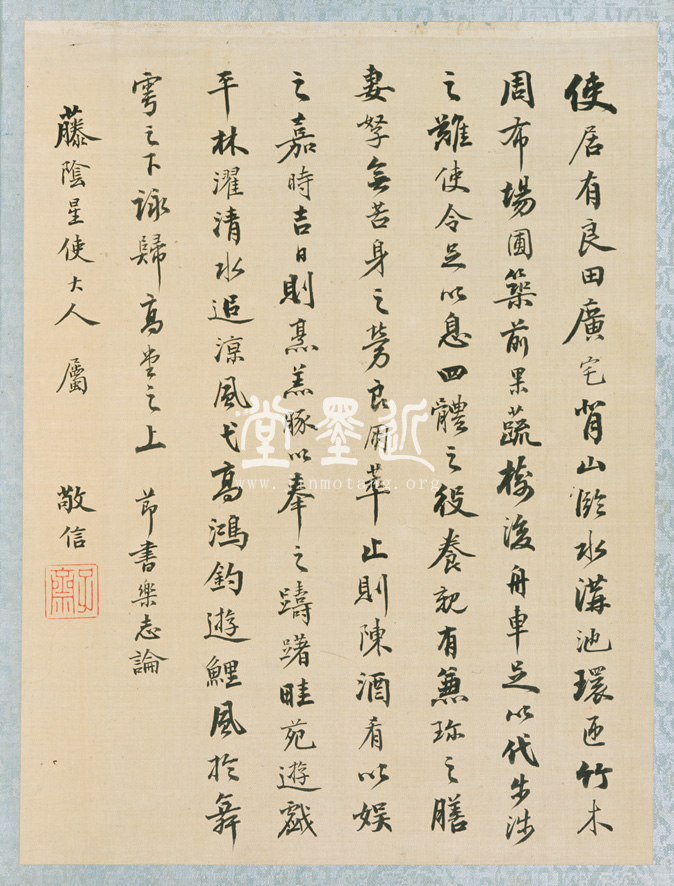 使居有良田廣宅背山臨水溝池環匝竹木
周布場圃築前果蔬樹後舟車足以代步涉
之難使令足以息四體之役養親有兼珍之膳
妻孥無苦身之勞良朋萃止則陳酒肴以娛
之嘉時吉日則烹羔豚以奉之躊躇畦苑遊戲
平林濯清水追涼風弋高鴻釣遊鯉風於舞
雩之下詠歸高堂之上 節書樂志論
藤陰星使大人屬 敬信
子齋
近墨堂
www.jinmotang.org